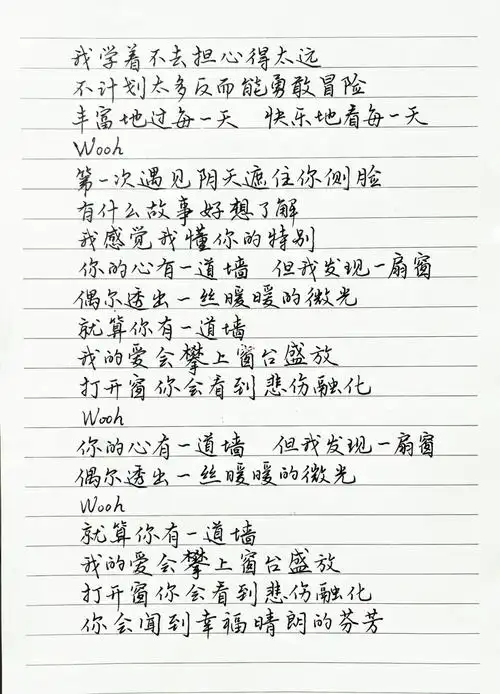 我学着不去担心得太远
不计划太多反而能勇敢冒险
丰富地过每一天 快乐地看每一天
Wooh
第一次遇见阴天遮住你侧脸
有什么故事好想了解
我感觉我懂你的特别
你的心有一道墙 但我发现一扇窗
偶尔透出一丝暖暖的微光
就算你有一道墙
我的爱会攀上窗台盛放
打开窗你会看到悲伤融化
Wooh
你的心有一道墙 但我发现一扇窗
偶尔透出一丝暖暖的微光
Wooh
就算你有一道墙
我的爱会攀上窗台盛放
打开窗你会看到悲伤融化
你会闻到幸福晴朗的芬芳